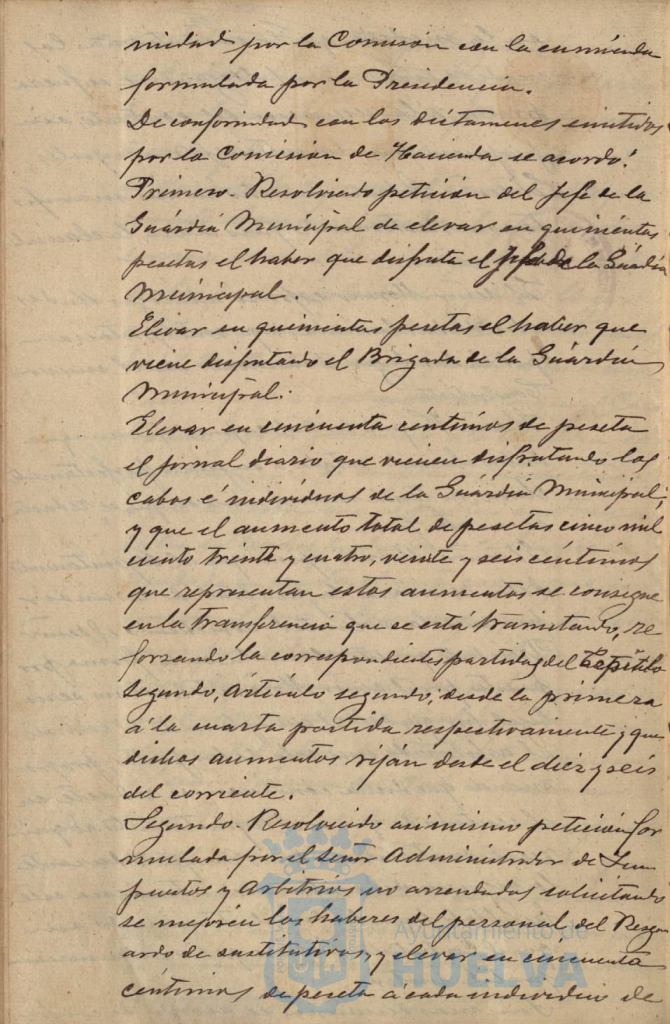 nidad por la Comisión con la enmienda
formulada por la Presidencia.
De conformidad con los dictámenes emitidos
por la Comisión de Hacienda se acordó:
Primero- Resolviendo petición del Jefe de la
Guárdia Municipal de elevar en quinientas
pesetas el haber que disfruta el Jefe de la Guárdia
Municipal.
Elevar en quinientas pesetas el haber que
viene disfrutando el Brigada de la Guárdia
Municipal.
Elevar en cincuenta céntimos de peseta
el jornal diario que vienen disfrutando los
cabos é individuos de la Guárdia Municipal;
y que el aumento total de pesetas cinco mil
ciento treinta y cuatro, veinte y seis céntimos
que representan estos aumentos se consigne
en la transferencia que se está tramitando, re
forzando la correspondientes partidas del Capítulo
segundo, Artículo segundo; desde la primera
á la cuarta partida respectivamente y que
dichos aumentos rijan desde el diez y seis
del corriente.
Segundo- Resolviendo asimismo petición for
mulada por el señor Administrador de Im
puestos y Arbitrios no arrendados solicitando
se mejoren los haberes del personal del Resgu
ardo de sustitutivos, y elevar en cincuenta
céntimos de peseta á cada individuo de
Ayuntamiento de
HUELVA